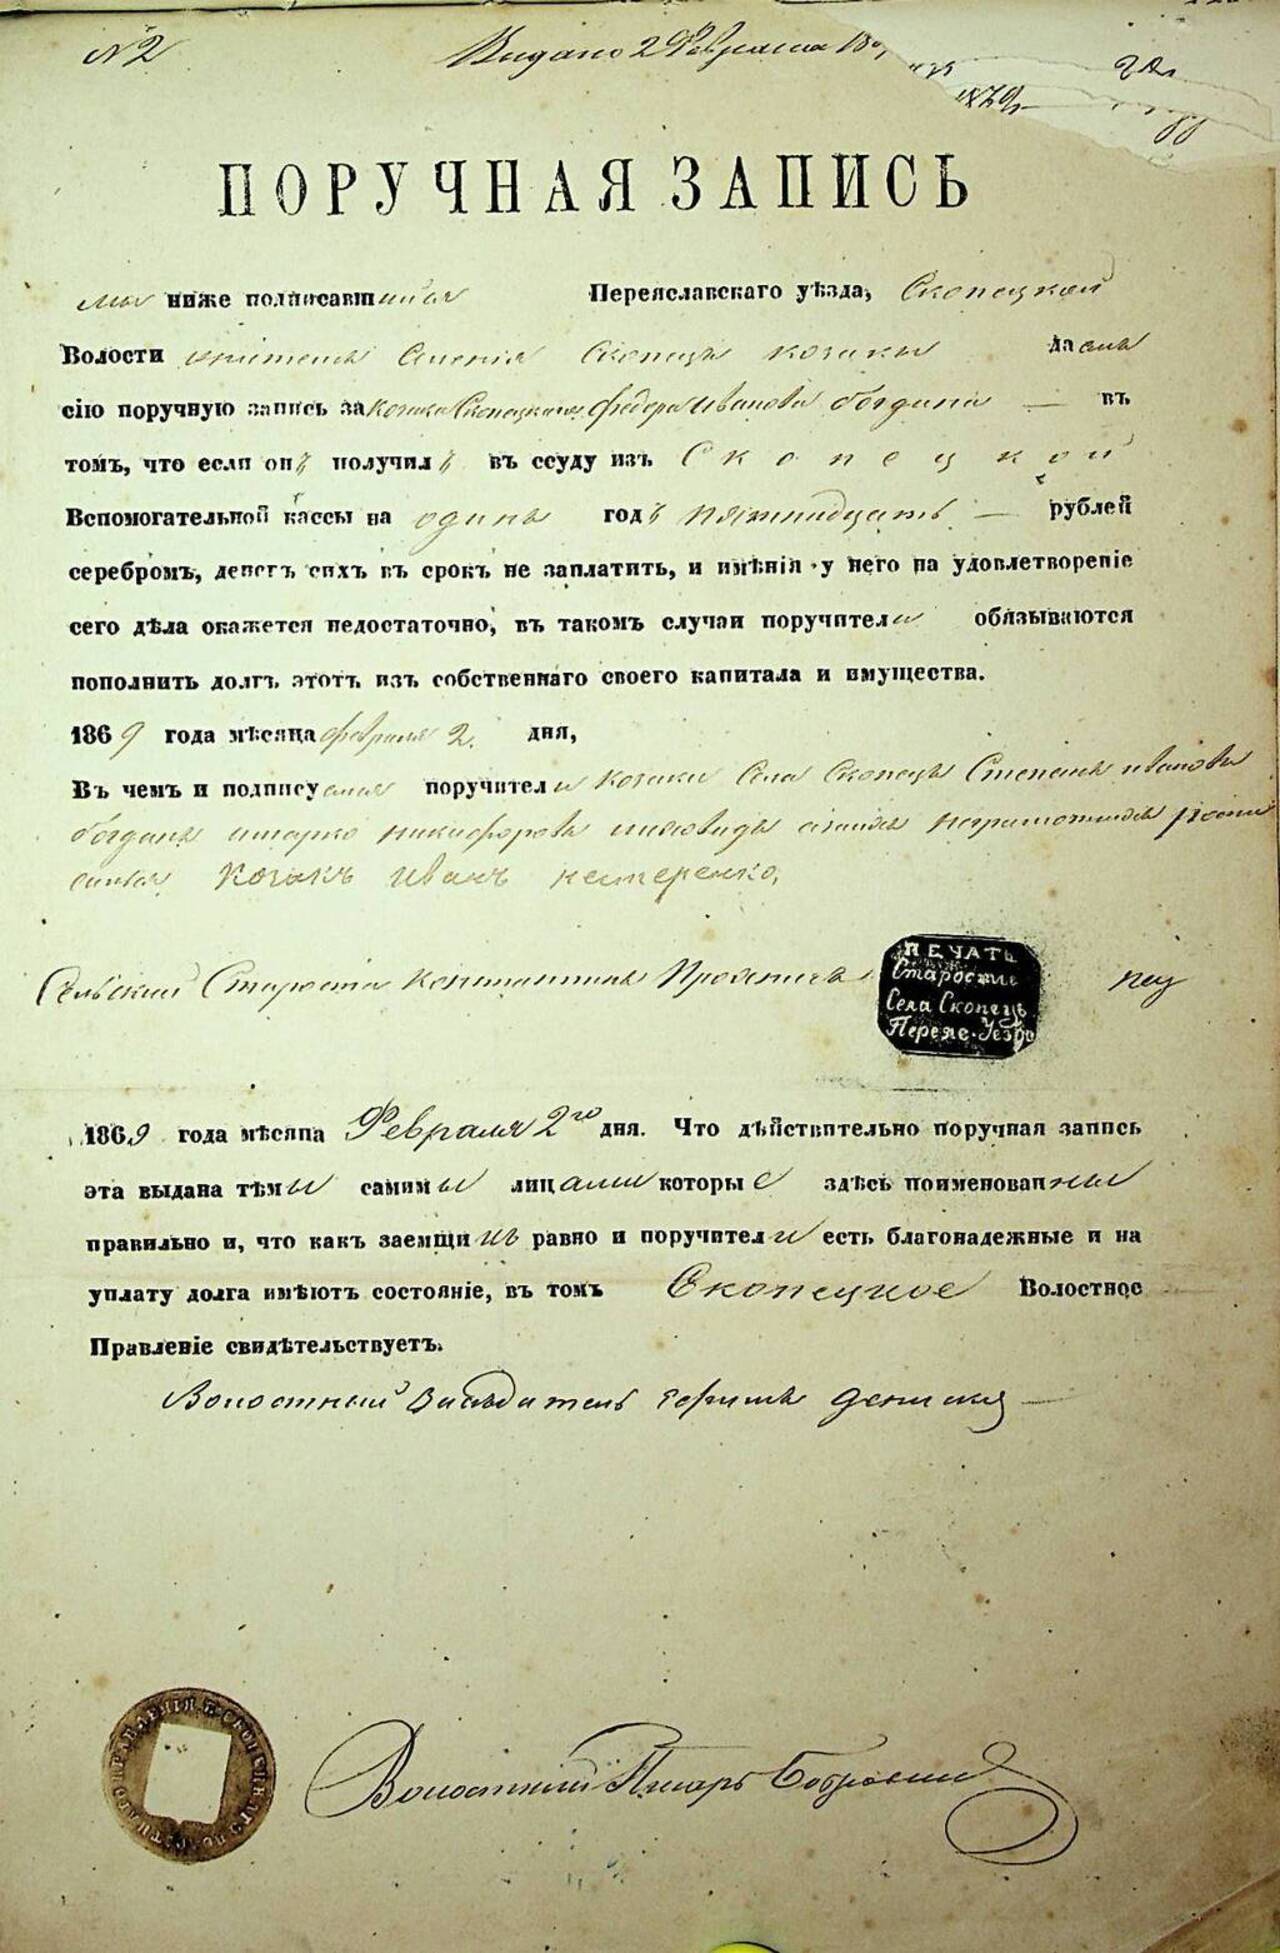 № 2 Выдано 2 Февраля
1879
ПОРУЧНАЯ ЗАПИСЬ
мы ниже подписавшиися Переяславскаго уѣзда, Скопецкой
Волости жители Селенія Скопецъ козаки дали
сію поручную запись за козака Скопецкаго федора иванова богдана — въ
томъ, что если онъ получилъ въ ссуду изъ Скопецкой
Вспомогательной кассы на одинъ годъ пятнадцать — рублей
серебромъ, денегъ сихъ въ срокъ не заплатить, и имѣнія у него на удовлетвореніе
сего дѣла окажется недостаточно, въ такомъ случаи поручители обязываются
пополнить долгъ этотъ изъ собственнаго своего капитала и имущества.
1869 года мѣсяца февраля 2. дня,
Въ чемъ и подписуемся поручители козаки села Скопецъ Степанъ иванова
богданъ имарко никифоровъ неграмотныя
козакъ иванъ нестеренко,
Сельский Староста константинъ
ПЕЧАТЬ
Старосты
Села Скопецъ
Переяс. Уезда
1869 года мѣсяца Февраля 2го дня. Что дѣйствительно поручная запись
эта выдана тѣми самимы лицами которые здѣсь поименованны
правильно и, что какъ заемщикъ равно и поручители есть благонадежные и на
уплату долга имѣютъ состояніе, въ томъ Скопецкое Волостное
Правленіе свидѣтельствуетъ.
Волостный
Волостный Писарь